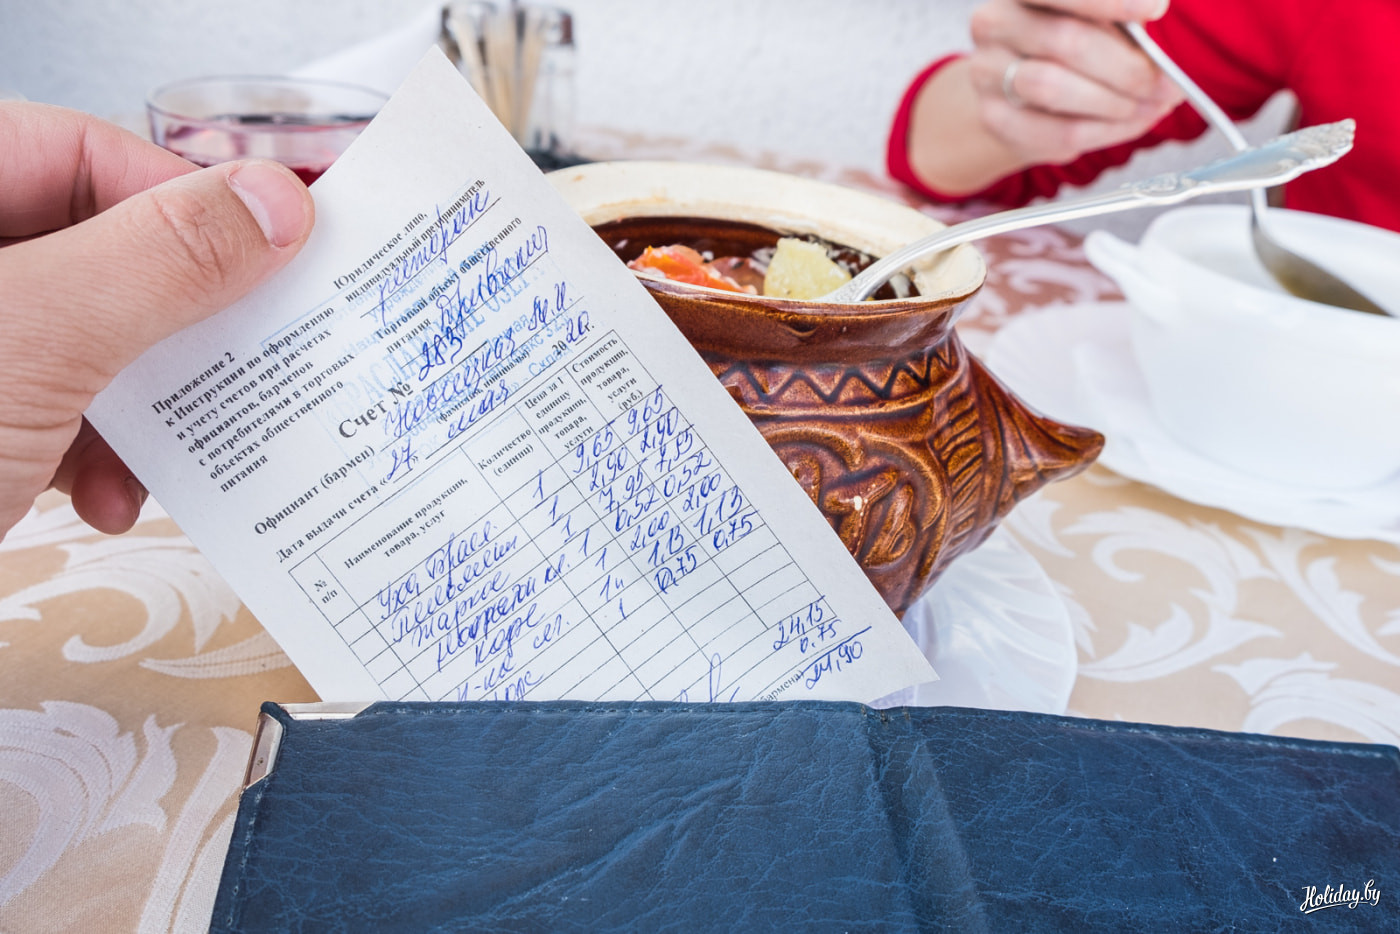 Юридическое лицо,
индивидуальный предприниматель
Торговый объект общественного
питания
Приложение 2
к Инструкции по оформлению
и учету счетов при расчетах
официантов, барменов
с потребителями в торговых
объектах общественного
питания
Счет № 283
Официант (бармен)
(фамилия, инициалы)
Дата выдачи счета «27» мая 2020г.
№ п/п
Наименование продукции, товара, услуг
Количество (единиц)
Цена за 1 единицу продукции, товара, услуги
Стоимость продукции, товара, услуги (руб.)
Уха 1 9,65 9,65
Пельмени 1 2,90 2,90
Жаркое 1 7,95 7,95
1 0,52 0,52
Кофе 1 2,00 2,00
1 1,13 1,13
1 0,75 0,75
24,15
0,75
24,90
(бармена)
Holiday.by